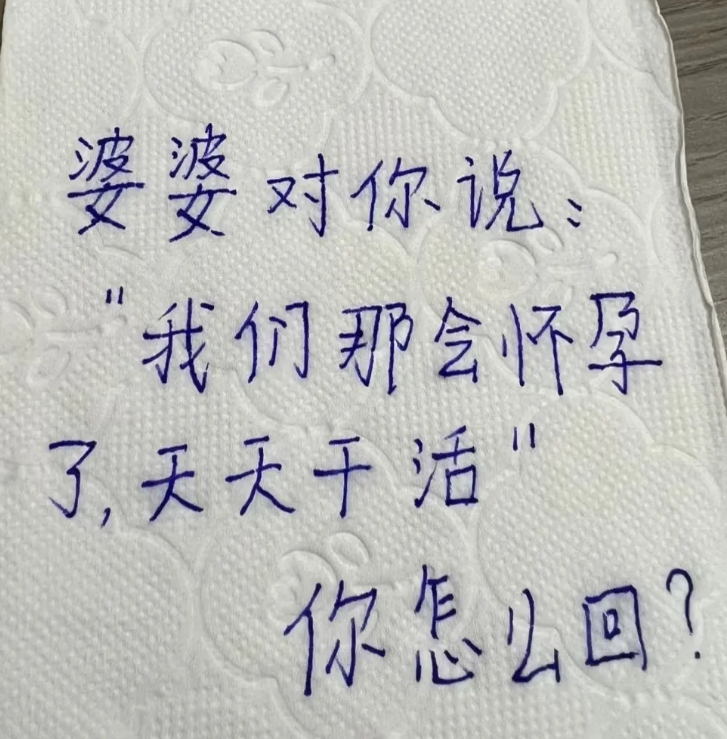 婆婆对你说：
"我们那会怀孕
了,天天干活"
你怎么回?